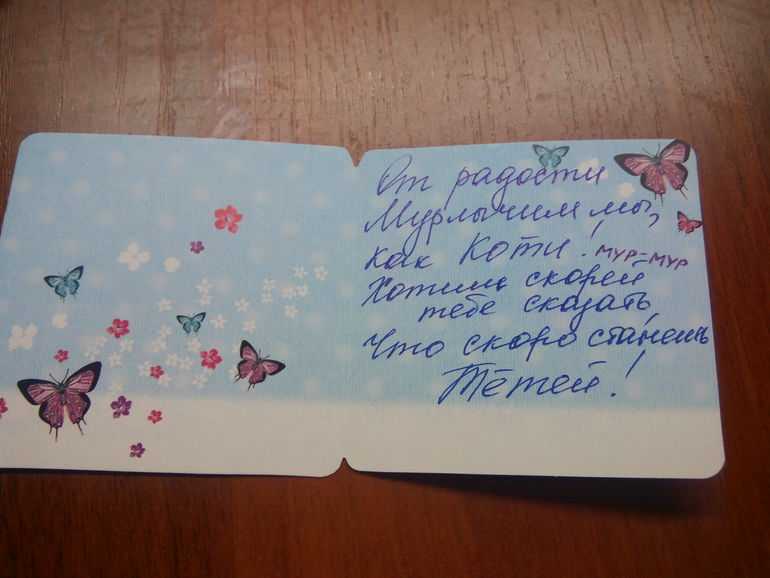 От радости
Мурлычим мы,
как Коти! мур-мур
Хотим скорей
тебе сказать,
Что скоро станешь
Тётей!